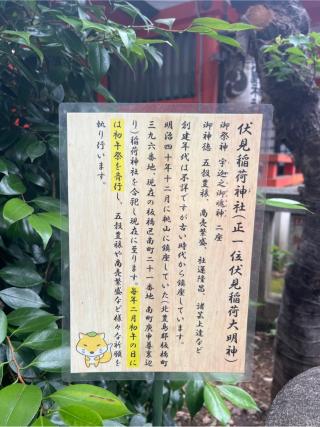 伏見稲荷神社(正一位伏見稲荷大明神)
御祭神 宇迦之御魂神 二座
御神徳 五穀豊穣、商売繁盛、社運隆昌 諸芸上達など
創建年代は不詳ですが古い時代から鎮座しています。
明治四十年十二月に桃山に鎮座していた(北豊島郡板橋町
三九六番地、現在の板橋区南町二十一番地 南町庚申善裏辺
り)稲荷神社を合祀し現在に至ります。毎年二月初午の日に
は初午祭を斉行し、五穀豊穣や商売繁盛など様々な祈願を
執り行います。